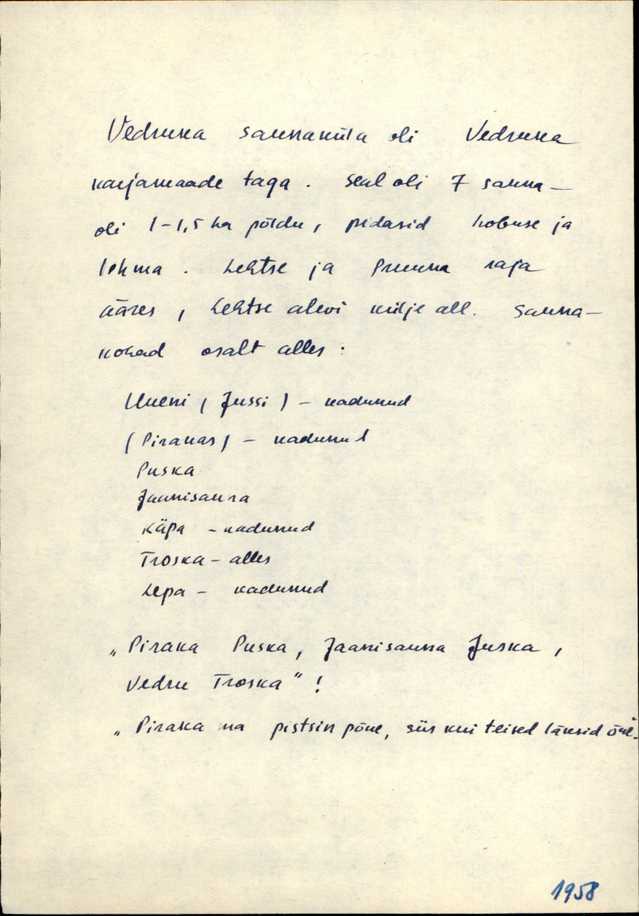 Vedruka saunaküla oli Vedruka
karjamaade taga. Seal oli 7 sauna -
oli 1-1,5 ha põldu, pidasid hobuse ja
lehma. Lehtse ja Pruuna raja
ääres, Lehtse alevi külje all. Sauna-
kohad osalt alles:
Uueni (Jussi) - kadunud
(Pirakas) - kadunud
Puska
Jaanisauna
Käpa - kadunud
Troska - alles
Lepa - kadunud
"Piraka Puska, Jaanisauna Juska,
Vedru Troska"!
"Piraka ma pistsin põue, siis kui teised läksid õue.
1958